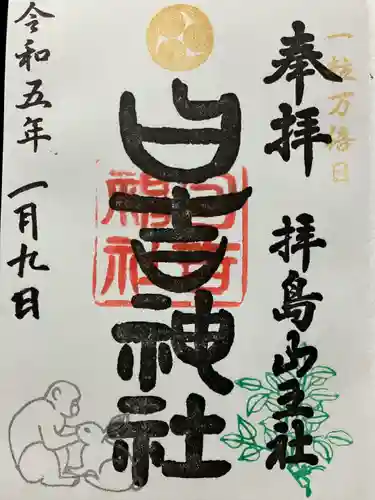 一粒万倍日
奉拝 拝島山王社
日吉神社
令和五年 一月九日